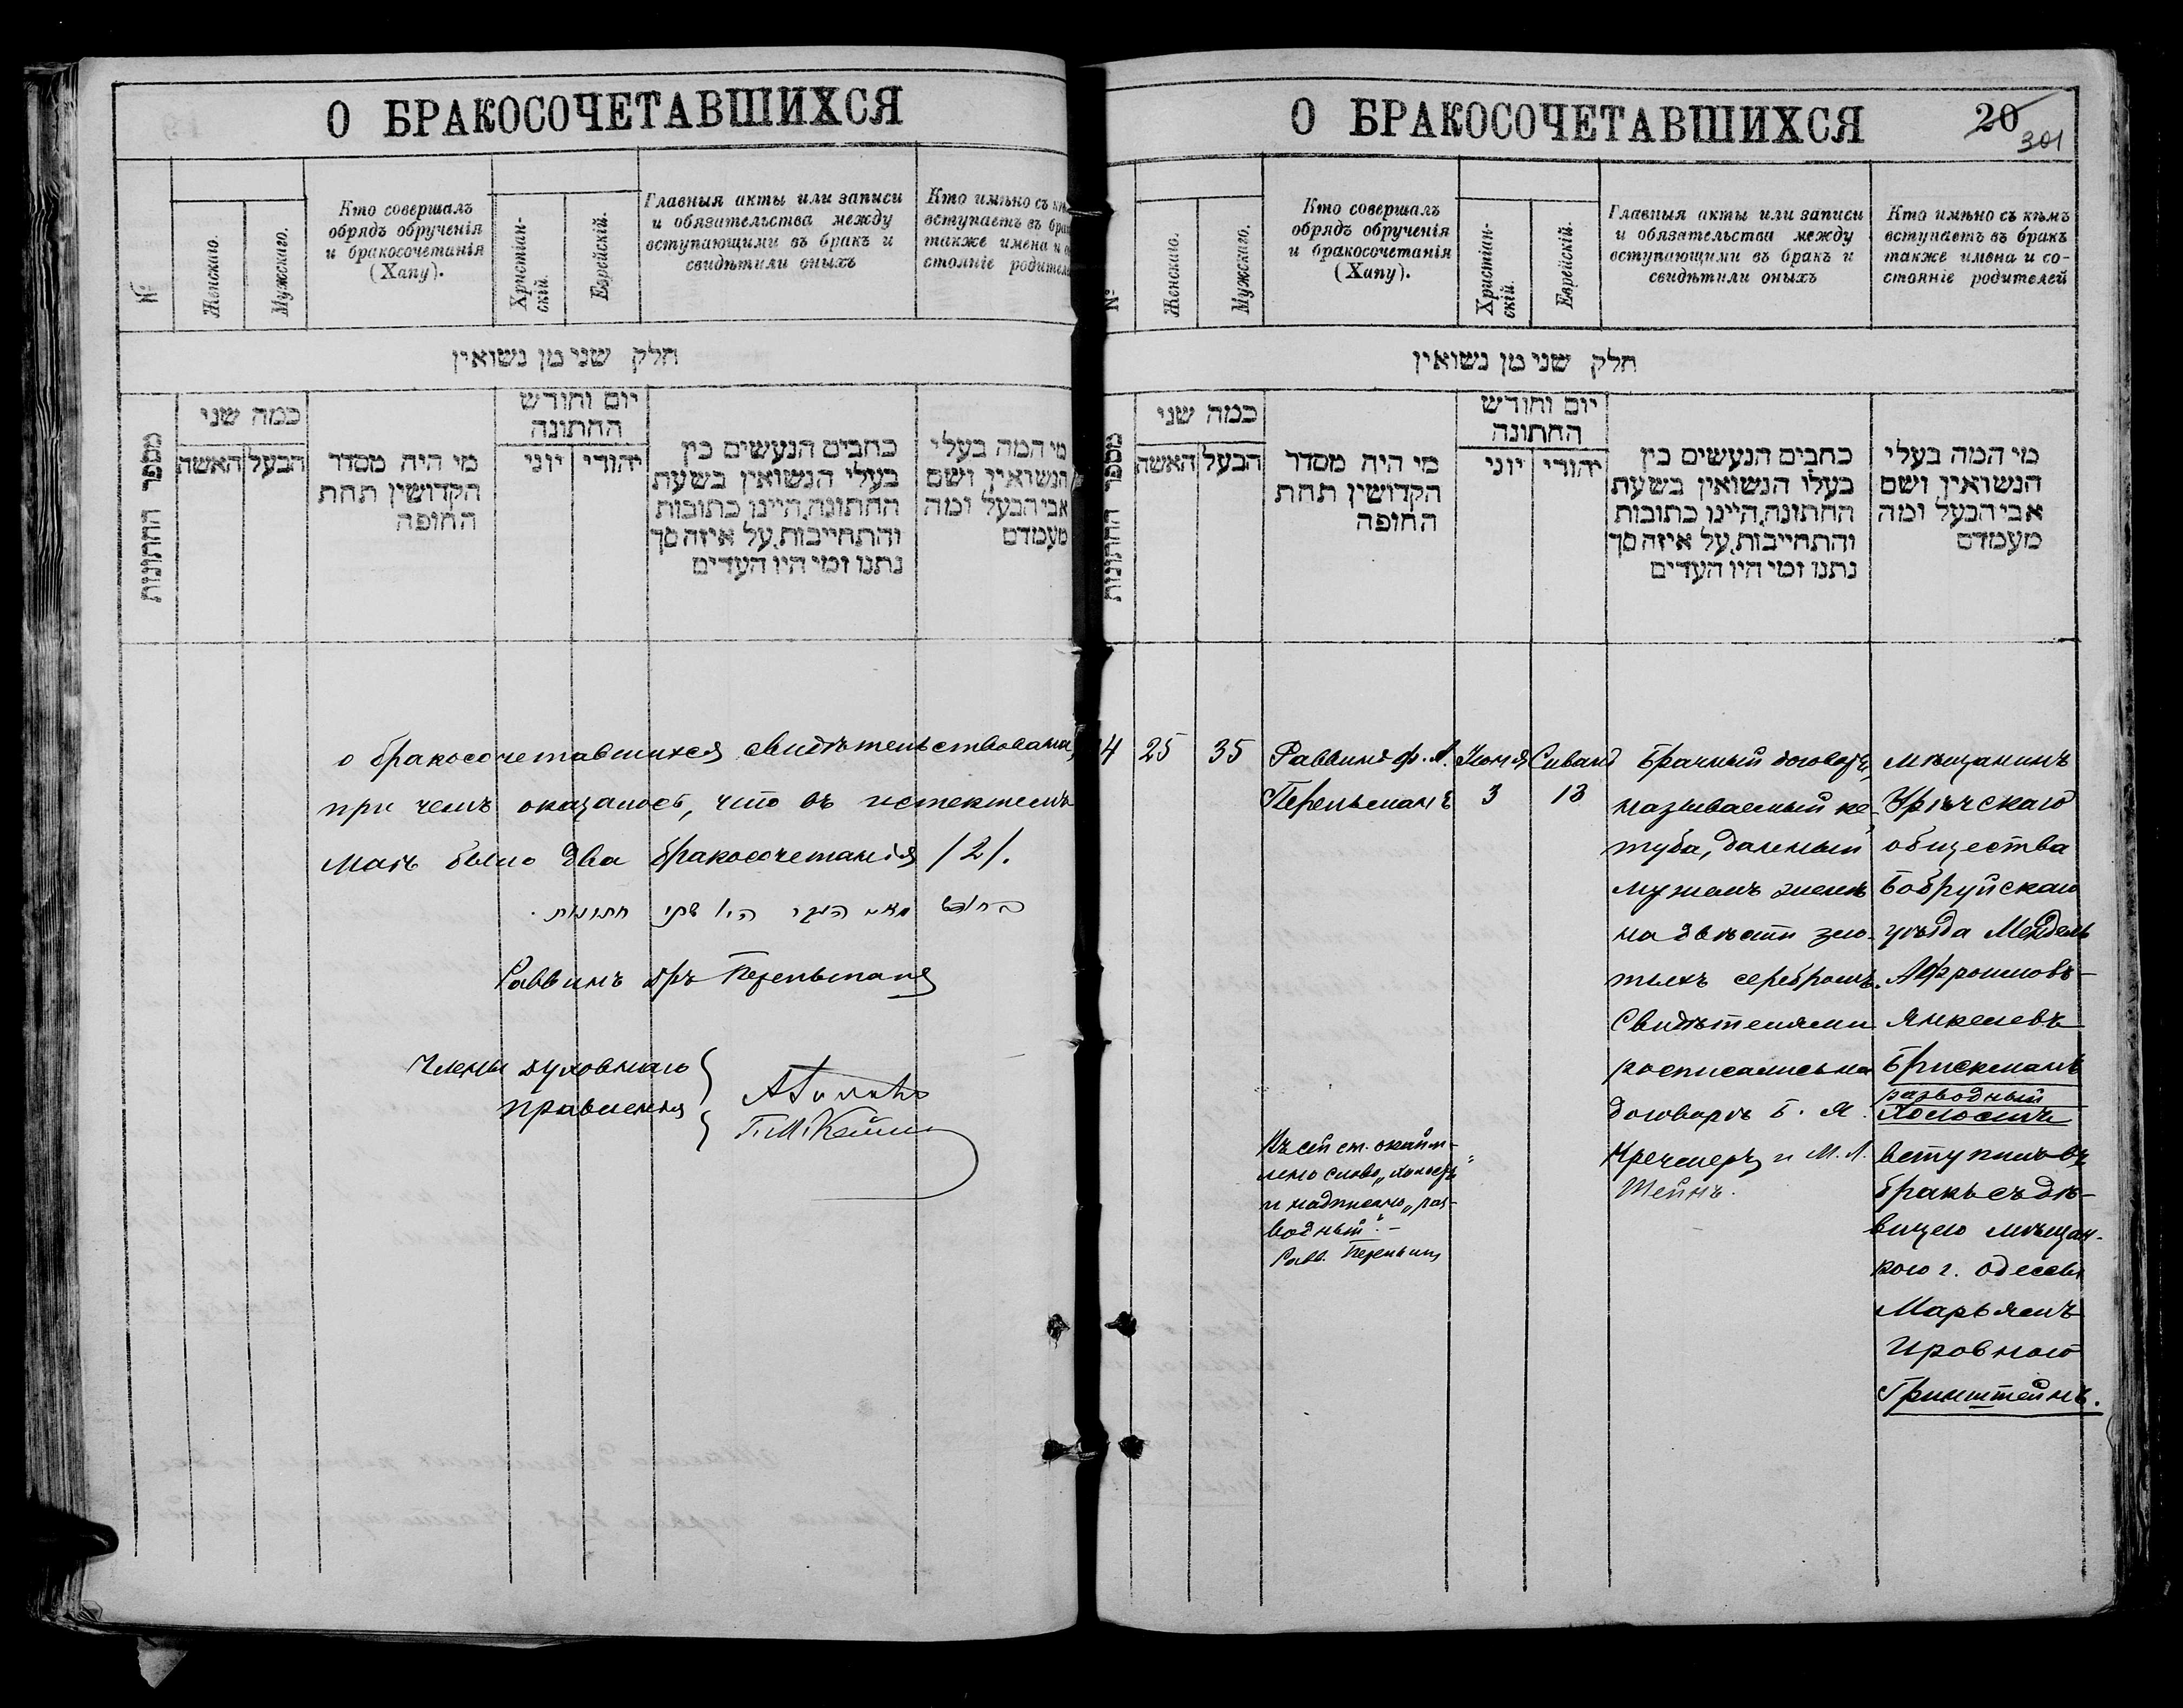 О БРАКОСОЧЕТАВШИХСЯ
№
Женскаго.
Мужскаго.
Кто совершалъ
обрядъ обрученія
и бракосочетанія
(Хапу).
Христіан-
скій.
Еврейскій.
Главныя акты или записи
и обязательства между
вступающими въ бракъ и
свидѣтили оныхъ
Кто имѣно съ
вступаетъ въ
также имена и
стояніе
חלק שני מן נשואין
מספר החתונות
כמה שני
האשה
הבעל
מי היה מסדר
הקדושין תחת
החופה
יום וחודש
החתונה
יוני
יהודי
כתבים הנעשים בין
בעלי הנשואין בשעת
החתונה, היינו כתובות
והתחייבות, על איזה סך
נתנו ומי היו העדים
מי המה בעלי
הנשואין ושם
אבי הבעל ומה
מעמדם
о бракосочетавшихся свидѣтельствована,
при чемъ оказалось, что въ истекшемъ
маѣ было два бракосочетанія /2/.
היו שתי חתונות.
Раввинъ др Перельманъ
Члены духовнаго
правленія
О БРАКОСОЧЕТАВШИХСЯ
20
301
№
Женскаго.
Мужскаго.
Кто совершалъ
обрядъ обрученія
и бракосочетанія
(Хапу).
Христіан-
скій.
Еврейскій.
Главныя акты или записи
и обязательства между
вступающими въ бракъ и
свидѣтили оныхъ
Кто имѣно съ кѣмъ
вступаетъ въ бракъ
также имена и со-
стояніе родителей
חלק שני מן נשואין
מספר החתונות
כמה שני
האשה
הבעל
מי היה מסדר
הקדושין תחת
החופה
יום וחודש
החתונה
יוני
יהודי
כתבים הנעשים בין
בעלי הנשואין בשעת
החתונה, היינו כתובות
והתחייבות, על איזה סך
נתנו ומי היו העדים
מי המה בעלי
הנשואין ושם
אבי הבעל ומה
מעמדם
4
25
35
Раввинъ ф. А.
Перельманъ
Іюня
3
Сиванъ
13
Брачный договоръ,
называемый ке-
туба, данный
мужемъ женѣ
на двѣсти зло-
тыхъ серебромъ.
Свидѣтелями
росписались на
договорѣ Б. Я.
Кречмеръ и М. Л.
Штейнъ.
Мѣщанинъ
Урѣчскаго
общества
Бобруйскаго
уѣзда Мендель
Афроимовъ-
Янкелевъ
Брискманъ
разводный
холостъ
вступилъ въ
бракъ съ дѣ-
вицею мѣщан-
кою г. Одессы
Марьямъ
Шровною
Гринштейнъ.
Въ сей ст. окайм-
лено слово „холостъ"
и надписано „раз-
водный". –
Равв. Перельманъ